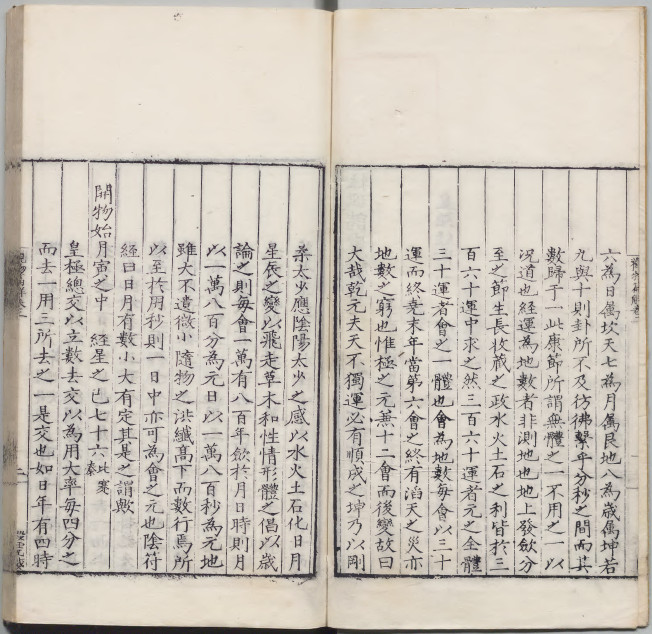 六為日萬坎天七為月萬艮地八為歲萬坤若
九與十則卦所不及彷彿繫乎分秒之間而其
數歸于一此康節所謂無體之一不用之一以
況道也經運為地數者非測地也地上發斂分
至之節生長收藏之政水火土石之利皆於三
百六十運中求之然三百六十運者元之全體
三十運者會之一體也會為地數每會以三十
運而終堯末年當第六會之終有滔天之災亦
地數之窮也惟極之元兼十二會而後變故曰
大哉乾元夫天不獨運必有順成之坤乃以剛
柔太少應陰陽太少之感以水火土石化日月
星辰之變以飛走草木和性情形體之倡以歲
論之則每會一萬有八百年斂於月日時則月
以一萬八百分為元日以一萬八百秒為元地
雖大不遺微小隨物之洪纖高下而數行焉所
以至於用秒則一日中亦可為會之元也陰符
經曰日月有數小大有定其是之謂歟
開物始月寅之中 經星之巳七十六
皇極總交以立數去交以為用大率每四分之
而去一用三所去之一是交也如日年有四時